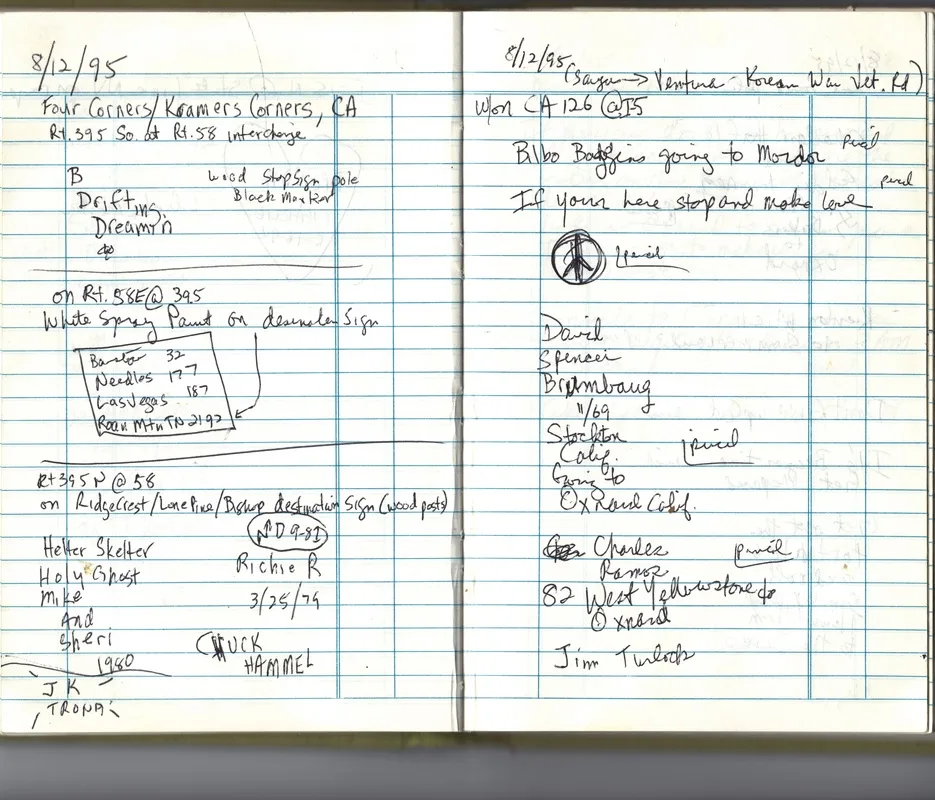 8/12/95
Four Corners/Kramers Corners, CA
Rt. 395 So. at Rt. 58 interchange
B
Drifting
Dreamin
wood Stop Sign pole
Black Marker
on Rt. 58E @ 395
White Spray Paint on destination Sign
Barstow 32
Needles 177
Las Vegas 187
Roan Mtn TN 2192
Rt 395 N @ 58
on Ridgecrest/Lone Pine/Bishop destination Sign (wood posts)
Helter Skelter
Holy Ghost
Mike
And
Sheri
1980
JK
TRONA
D 9-81
Richie R
3/25/79
CHUCK
HAMMEL
8/12/95
(Saugus → Ventura - Korean War Vet. Rd)
W/on CA 126 @ I5
Bilbo Baggins going to Mordor pencil
If your here stop and make love pencil
pencil
David
Spencer
11/69
Stockton
Calif.
Going to
Oxnard Calif.
pencil
Charles
Ramos
82 West Yellowstone
Oxnard
pencil
Jim Turlock